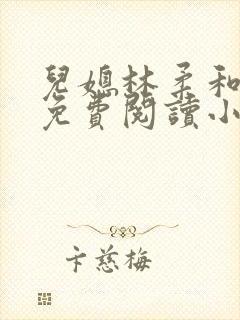 兒媳林柔和
免費閱讀小
卞慈梅